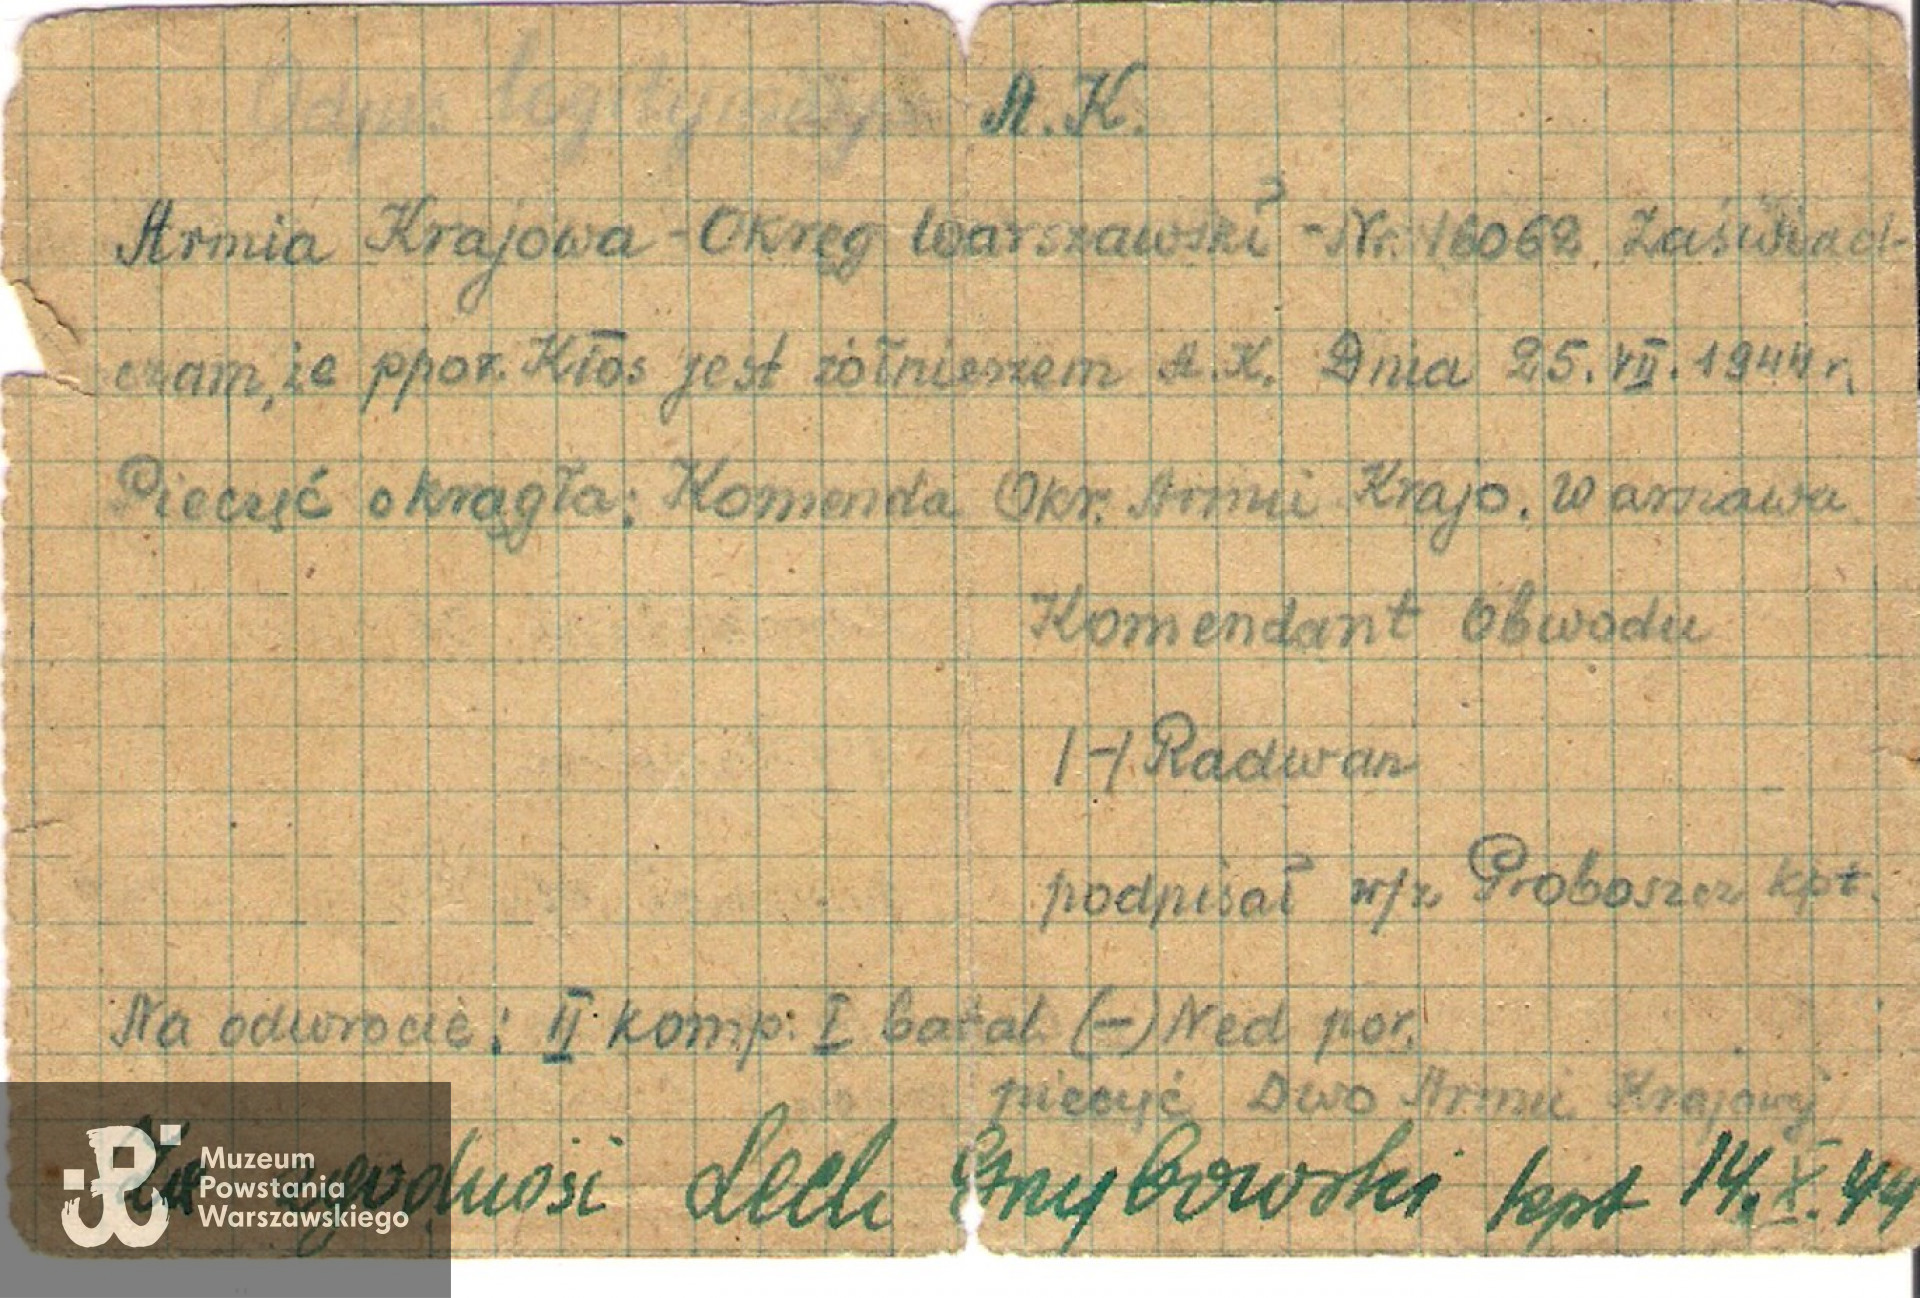 Odpis legitymacji A.K.
Armia Krajowa - Okręg Warszawski - Nr. 16062. Zaświad-
czam, że ppor. Kłos jest żołnierzem A.K. Dnia 25.VII.1944 r.
Pieczęć okrągła: Komenda Okr. Armii Krajo. Warszawa
Komendant Obwodu
/-/ Radwan
podpisał w/z Proboszcz kpt.
Na odwrocie: II komp. I batal. (-) Ned por.
pieczęć Dwo Armii Krajowej
Za zgodność Lech Grzybowski kpt 14.X.44
Muzeum
Powstania
Warszawskiego